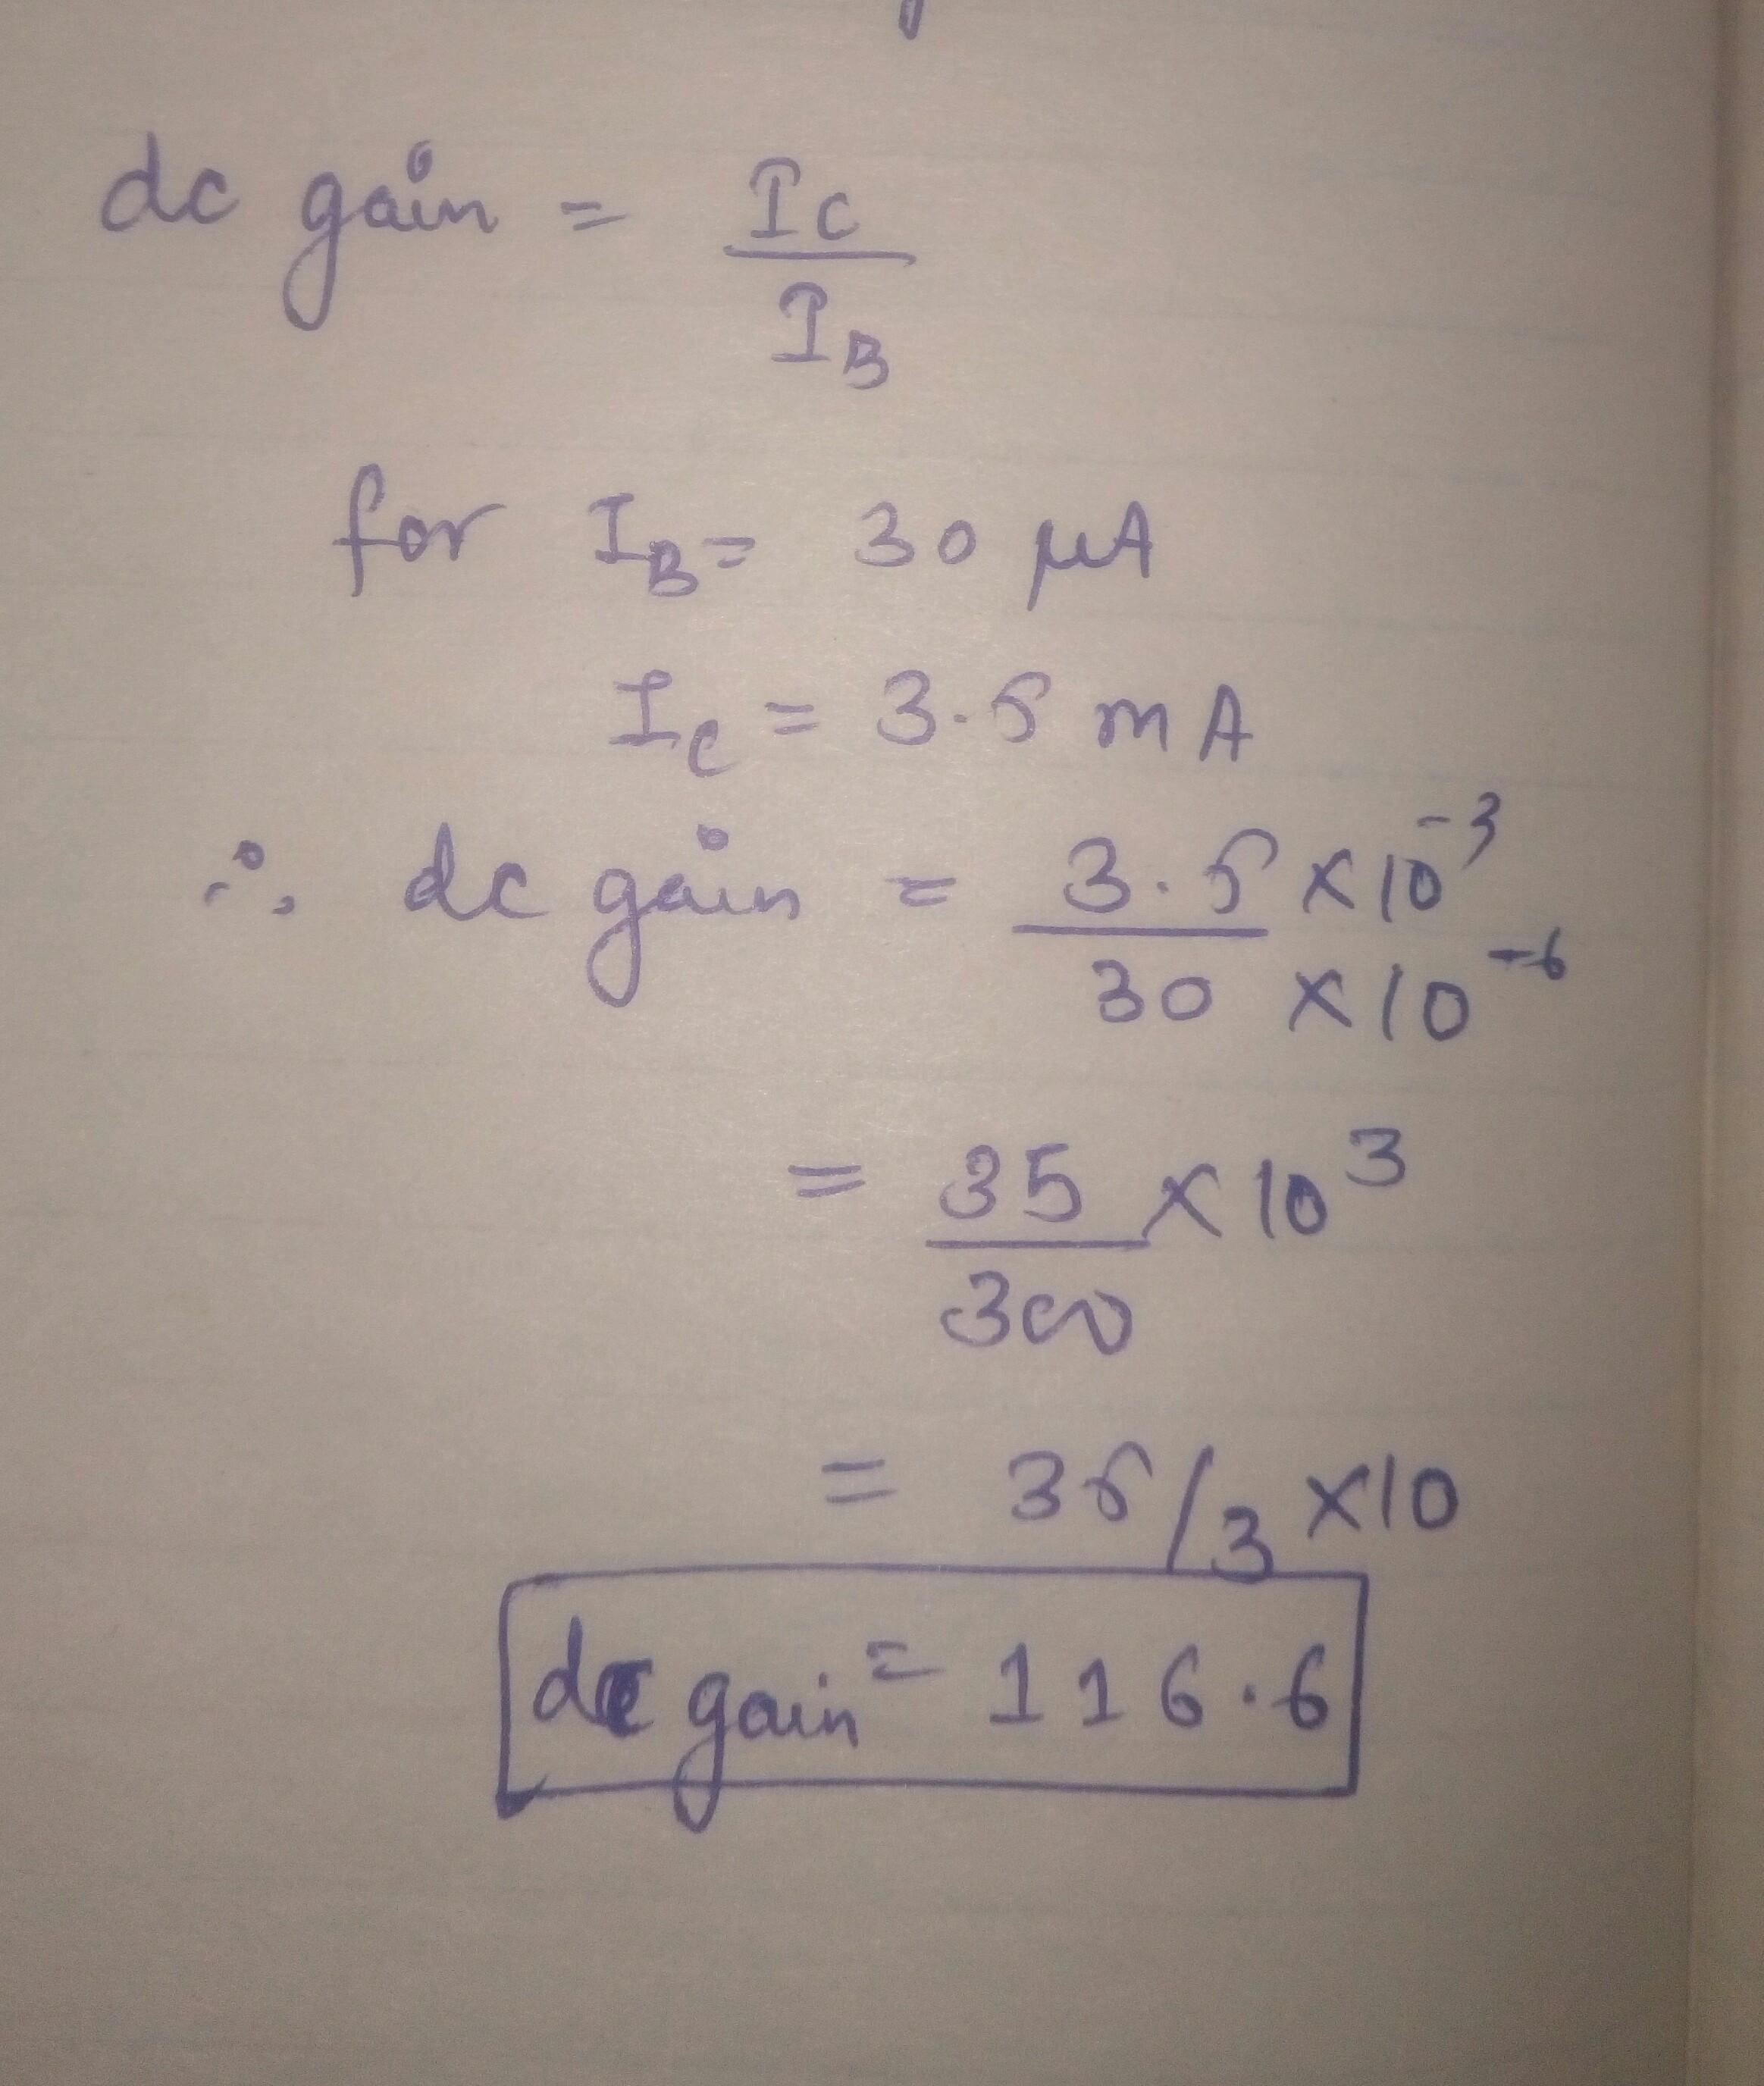 dc gain = Ic
IB
for IB = 30 μA
Ic = 3.5 mA
∴ dc gain = 3.5 × 10⁻³
30 × 10⁻⁶
= 35 × 10³
300
= 35/3 × 10
dc gain = 116.6